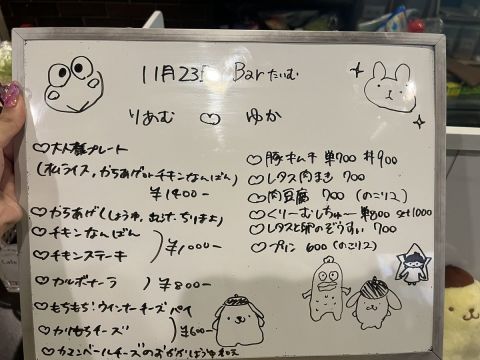 11月23日 Barたいむ
りあむ ♡ ゆか
♡大人様プレート
(オムライス,からあげorチキンなんばん)
¥1400-
♡からあげ(しょうゆ,
♡チキンなんばん
♡チキンステーキ
¥1000-
♡カルボナーラ ) ¥800-
♡もちもち!ウインナーチーズパイ
♡カリもちチーズ
¥600-
♡カマンベールチーズのおかかしょうゆ
♡豚キムチ 単700 丼900
♡レタス肉まき 700
♡肉豆腐 700 (のこり2)
♡くりーむしちゅ〜 単800 set1000
♡レタスと卵のぞうすい 700
♡プリン 600 (のこり2)